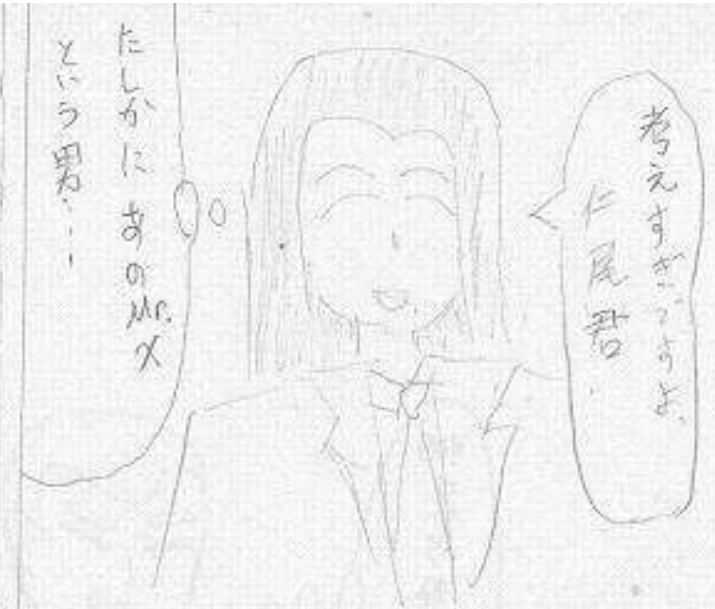 考えすぎですよ、
仁尾君.
たしかに あの Mr. X
という男・・・